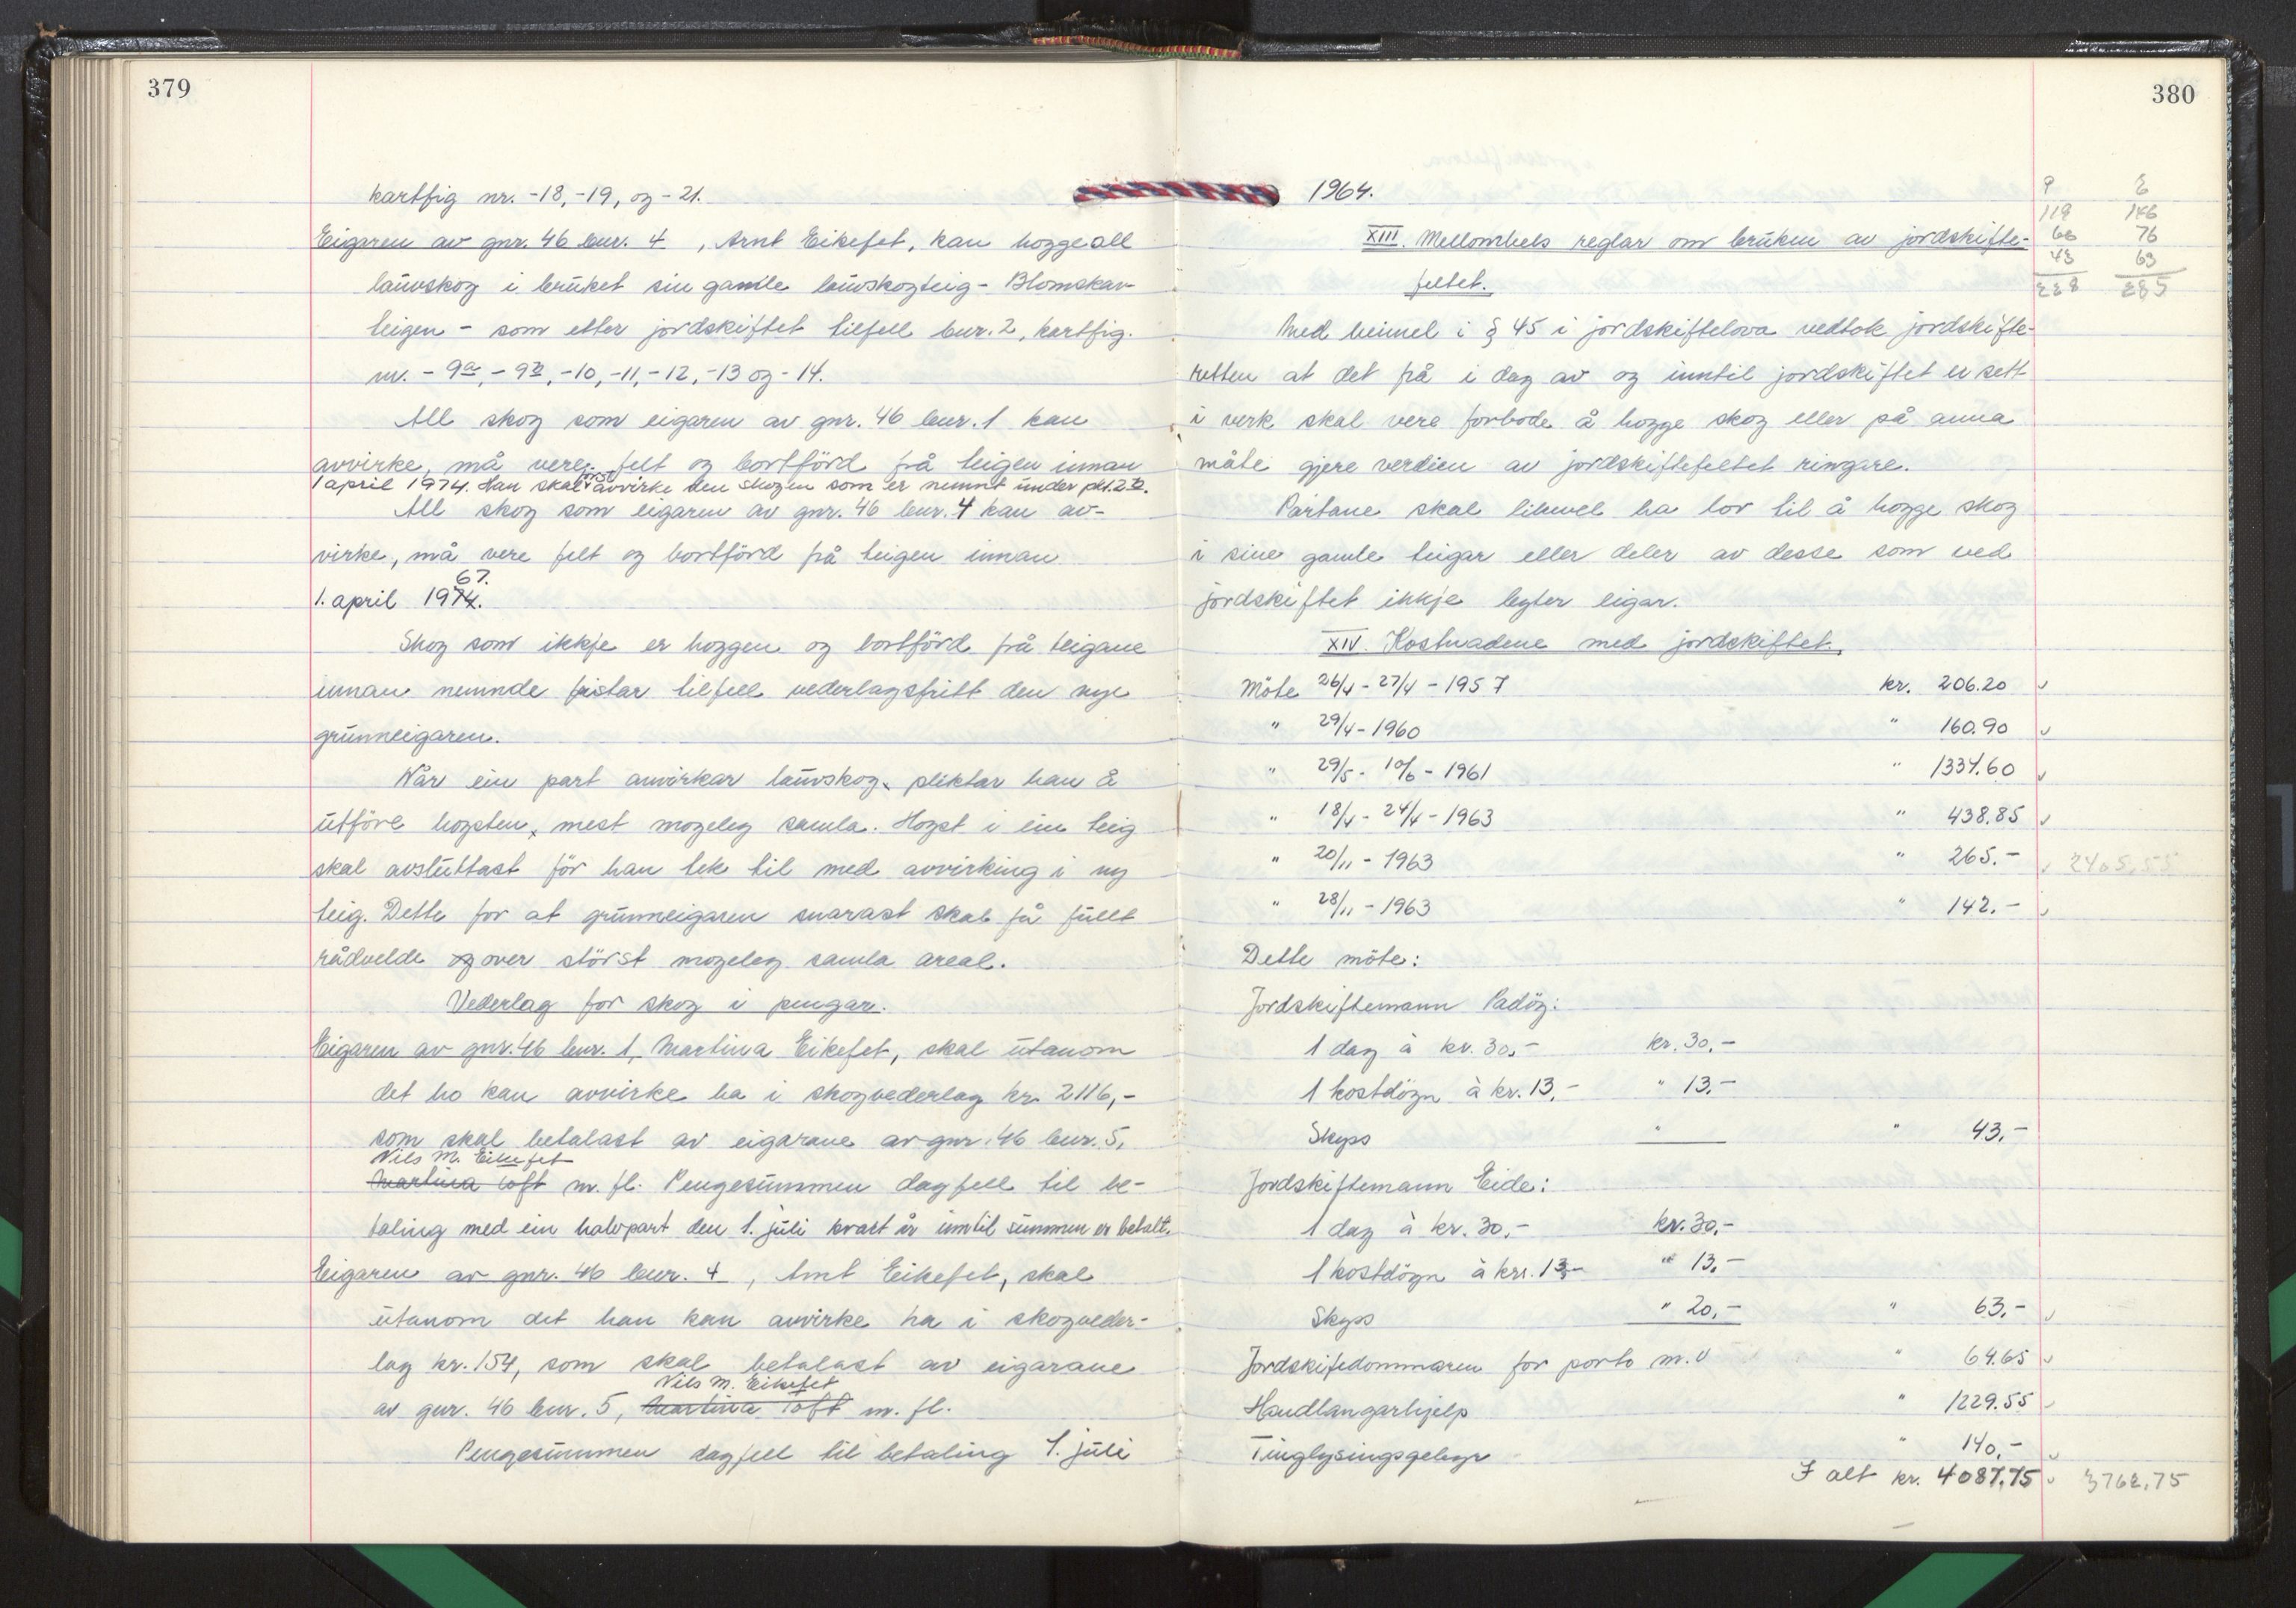 379
kartfig nr. -18, -19, og -21.
Eigaren av gnr. 46 bnr. 4, Arnt Eikefet, kan hogge all
lauvskog i bruket sin gamle lauvskogteig - Blomskar-
teigen - som etter jordskiftet tilfell bnr. 2, kartfig.
nr. - 9a, - 9b, -10, -11, -12, -13 og -14.
All skog som eigaren av gnr. 46 bnr. 1 kan
avvirke, må vere felt og bortförd frå teigen innan
1 april 1974. Han skal først avvirke den skogen som er nemnt under pkt. 2b.
All skog som eigaren av gnr. 46 bnr. 4 kan av-
virke, må vere felt og bortförd frå teigen innan
67.
1. april 1974.
Skog som ikkje er hoggen og bortförd frå teigane
innan nemnde fristar tilfell vederlagsfritt den nye
grunneigaren.
Når ein part avvirkar lauvskog, pliktar han å
utföre hogsten, mest mogeleg samla. Hogst i ein teig
skal avsluttast för han tek til med avvirking i ny
teig. Dette for at grunneigaren snarast skal få fullt
rådvelde og over störst mogeleg samla areal.
Vederlag for skog i pengar.
Eigaren av gnr. 46 bnr. 1, Martina Eikefet, skal utanom
det ho kan avvirke ha i skogvederlag kr. 2116,-
som skal betalast av eigarane av gnr. 46 bnr. 5,
Nils M. Eikefet
Martina Toft m. fl. Pengesummen dagfell til be-
taling med ein halvpart den 1. juli kvart år inntil summen er betalt.
Eigaren av gnr. 46 bnr. 4, Arnt Eikefet, skal
utanom det han kan avvirke ha i skogveder-
lag kr. 154, som skal betalast av eigarane
Nils M. Eikefet
av gnr. 46 bnr. 5, Martina Toft m. fl.
Pengesummen dagfell til betaling 1. juli
380
1964.
P E
119 146
66 76
43 63
228 285
XIII. Mellombels reglar om bruken av jordskifte-
feltet.
Med heimel i § 45 i jordskiftelova vedtok jordskifte-
retten at det frå i dag av og inntil jordskiftet er sett
i verk skal vere forbode å hogge skog eller på anna
måte gjere verdien av jordskiftefeltet ringare.
Partane skal likevel ha lov til å hogge skog
i sine gamle teigar eller deler av desse som ved
jordskiftet ikkje byter eigar.
XIV. Kostnadene med jordskiftet.
Möte 26/4 - 27/4 - 1957 kr. 206.20
" 29/4 - 1960 " 160.90
" 29/5 - 10/6 - 1961 " 1334.60
" 18/4 - 24/4 - 1963 " 438.85
" 20/11 - 1963 " 265.- 2405,55
" 28/11 - 1963 " 142.-
Dette möte:
Jordskiftemann Padög:
1 dag à kr. 30,- kr. 30,-
1 kostdögn à kr. 13,- " 13,-
Skyss " — " 43,-
Jordskiftemann Eide:
1 dag à kr. 30,- kr. 30,-
1 kostdögn à kr. 13,- " 13,-
Skyss " 20,- " 63,-
Jordskiftedommaren for porto m.v " 64.65
Handlangarhjelp " 1229.55
Tinglysingsgebyr " 140,-
I alt kr. 4087,75 3762,75